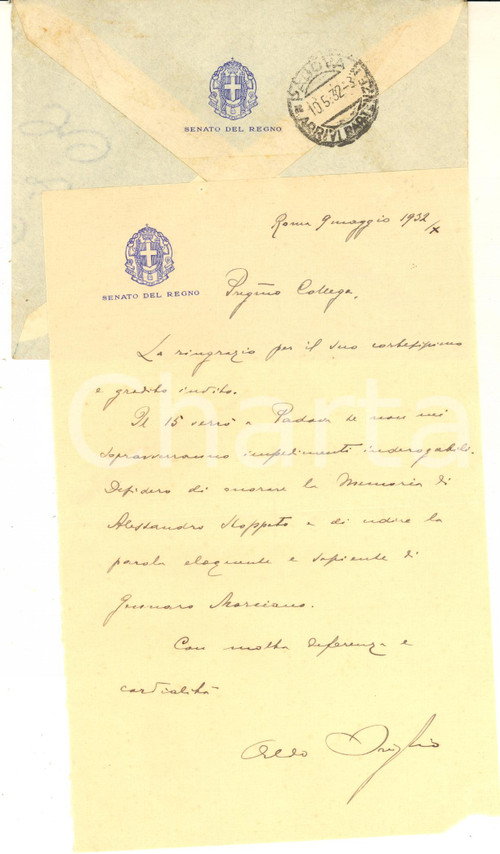 SENATO DEL REGNO
PADOVA
10.5.32
ARRIVI
SENATO DEL REGNO
Roma 9 maggio 1932/X
Pregmo Collega,
La ringrazio per il suo cortesissimo
e gradito invito.
Il 15 verrò a Padova se non mi
sopravverranno impedimenti inderogabili.
Desidero di onorare la Memoria di
Alessandro Stoppato e di udire la
parola eloquente e sapiente di
Gennaro Marciano.
Con molta deferenza e
cordialità
Aldo Oviglio
Charta